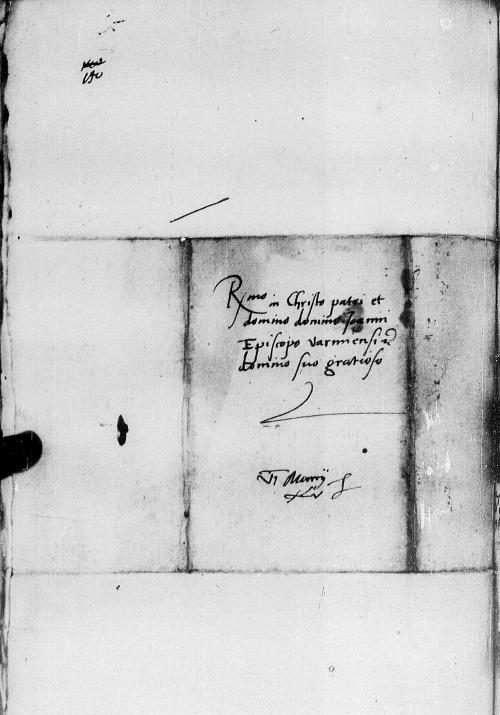 Rmo in Christo patri et
domino domino Joanni
Episcopo Varmiensi
domino suo gratioso